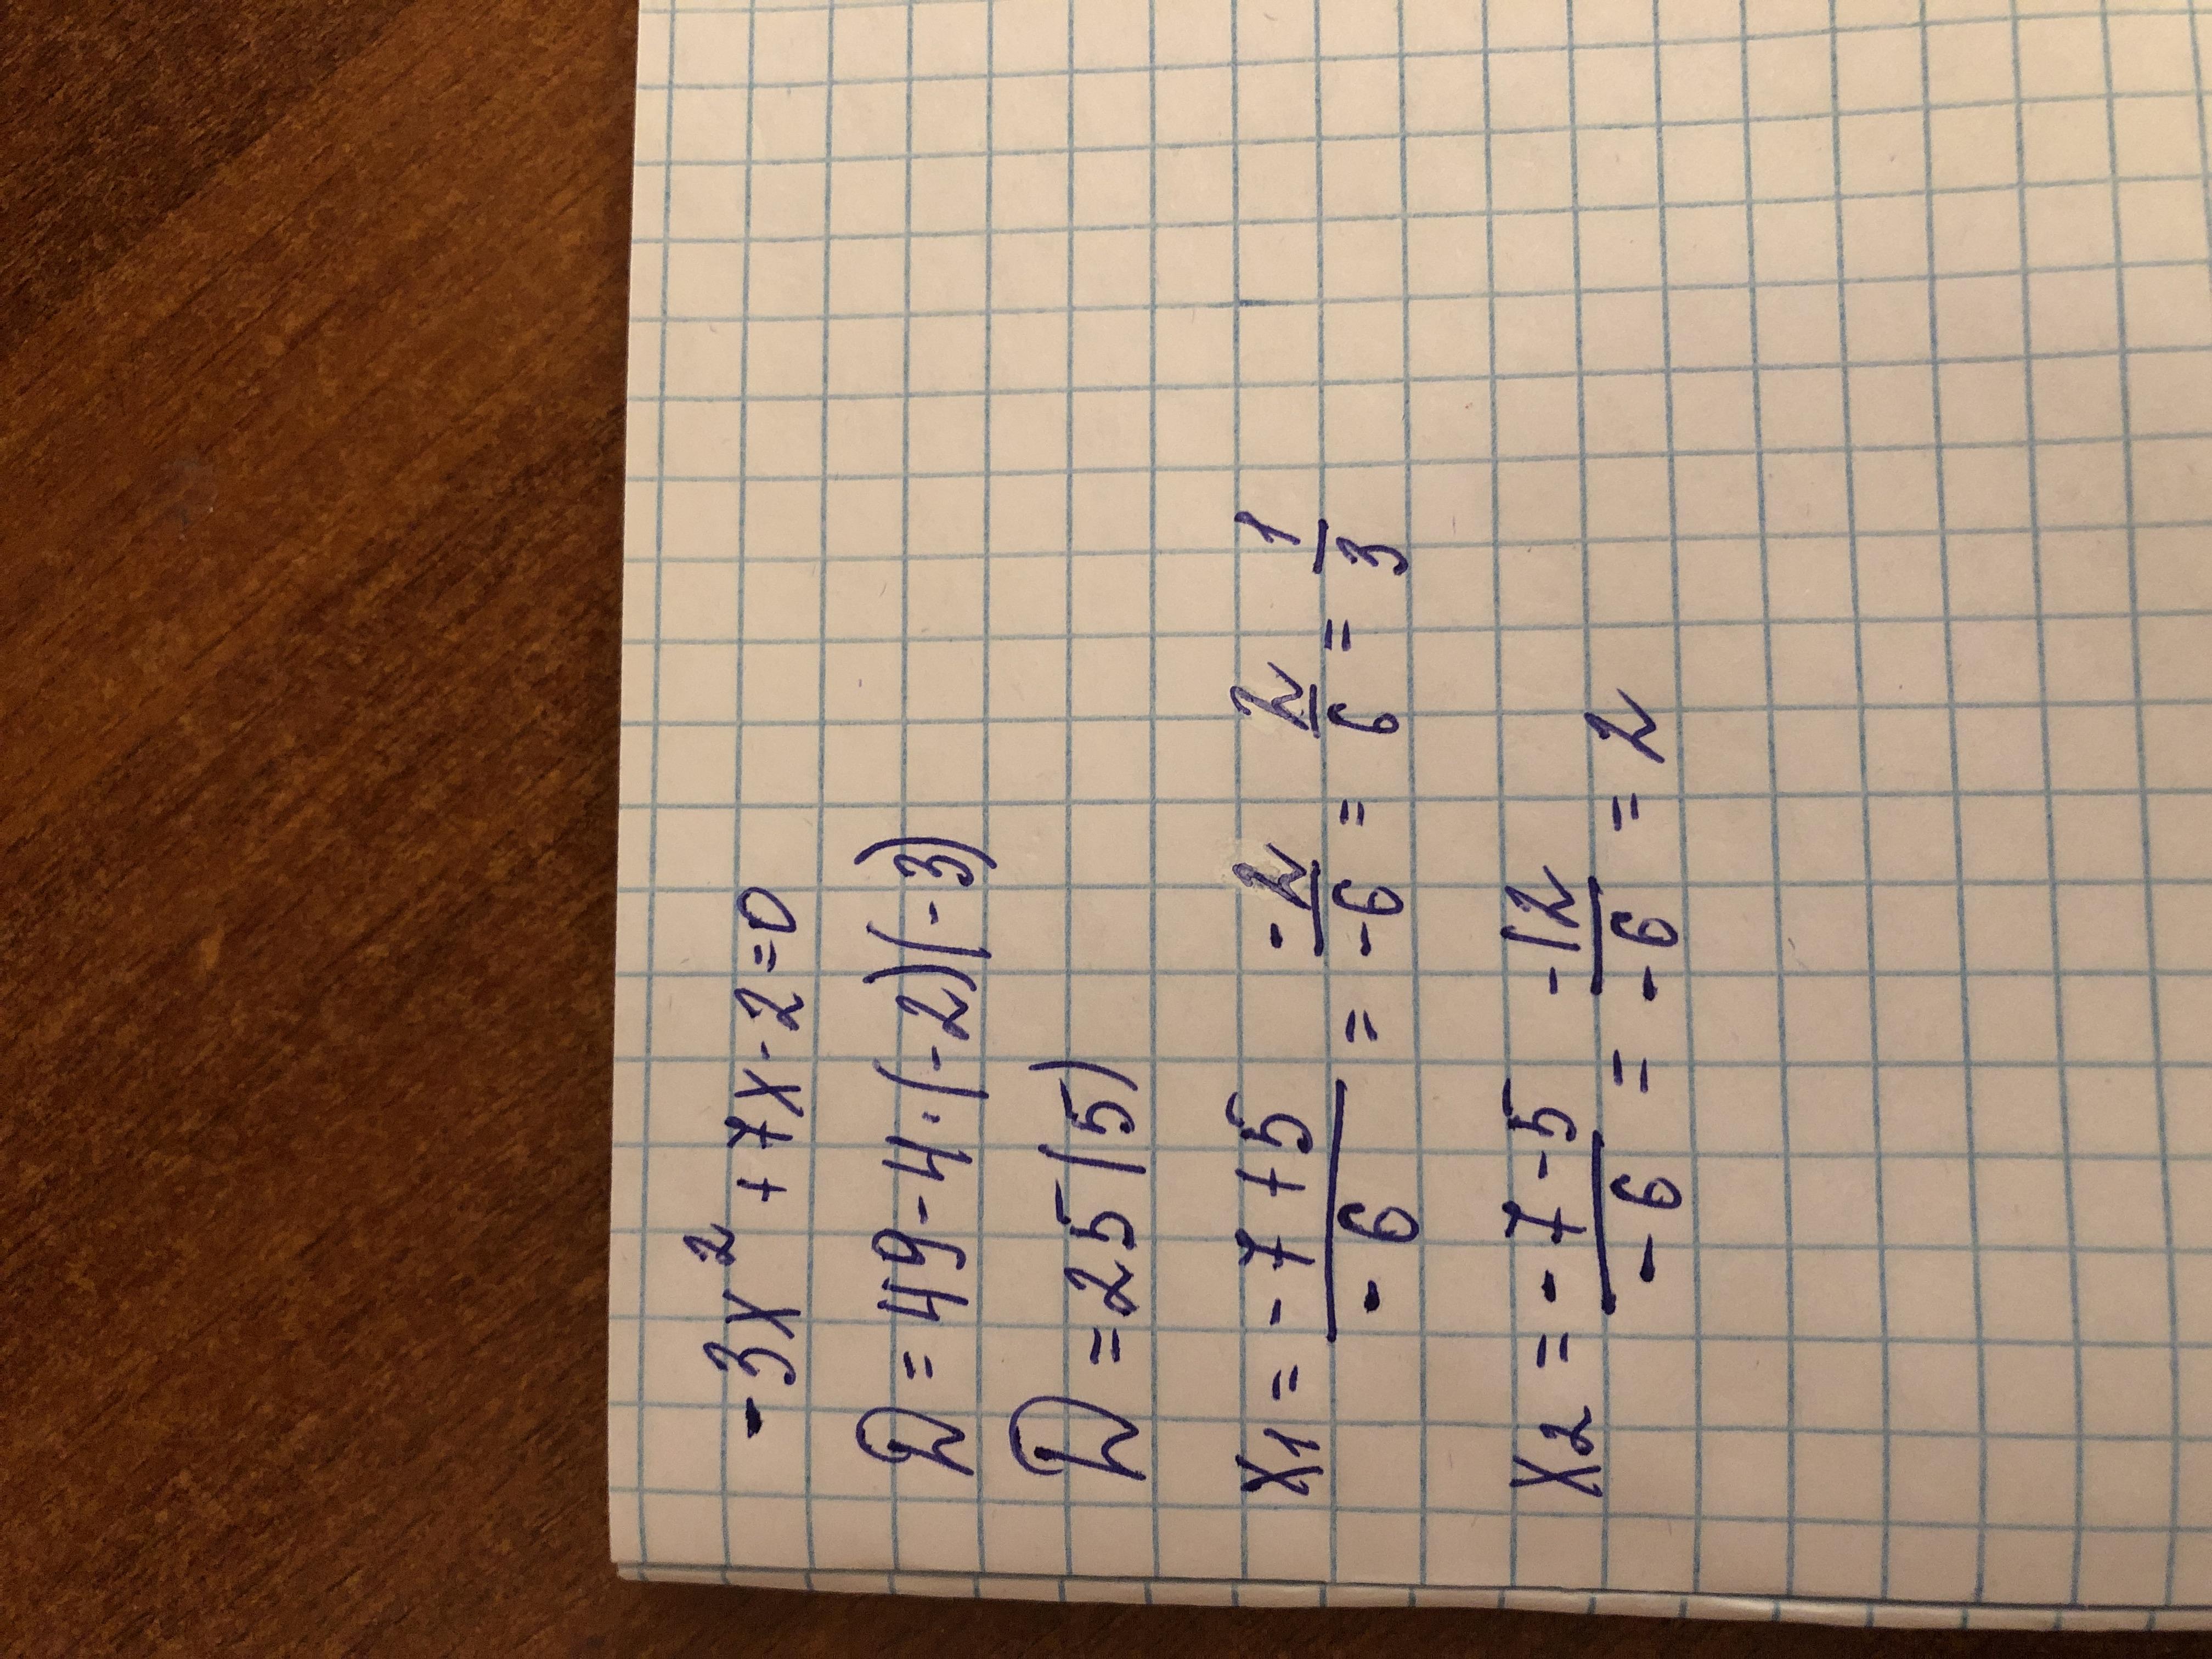 -3x² + 7x - 2 = 0
D = 49 - 4·(-2)(-3)
D = 25 (5)
x₁ = (-7 + 5)/(-6) = (-2)/(-6) = 2/6 = 1/3
x₂ = (-7 - 5)/(-6) = (-12)/(-6) = 2